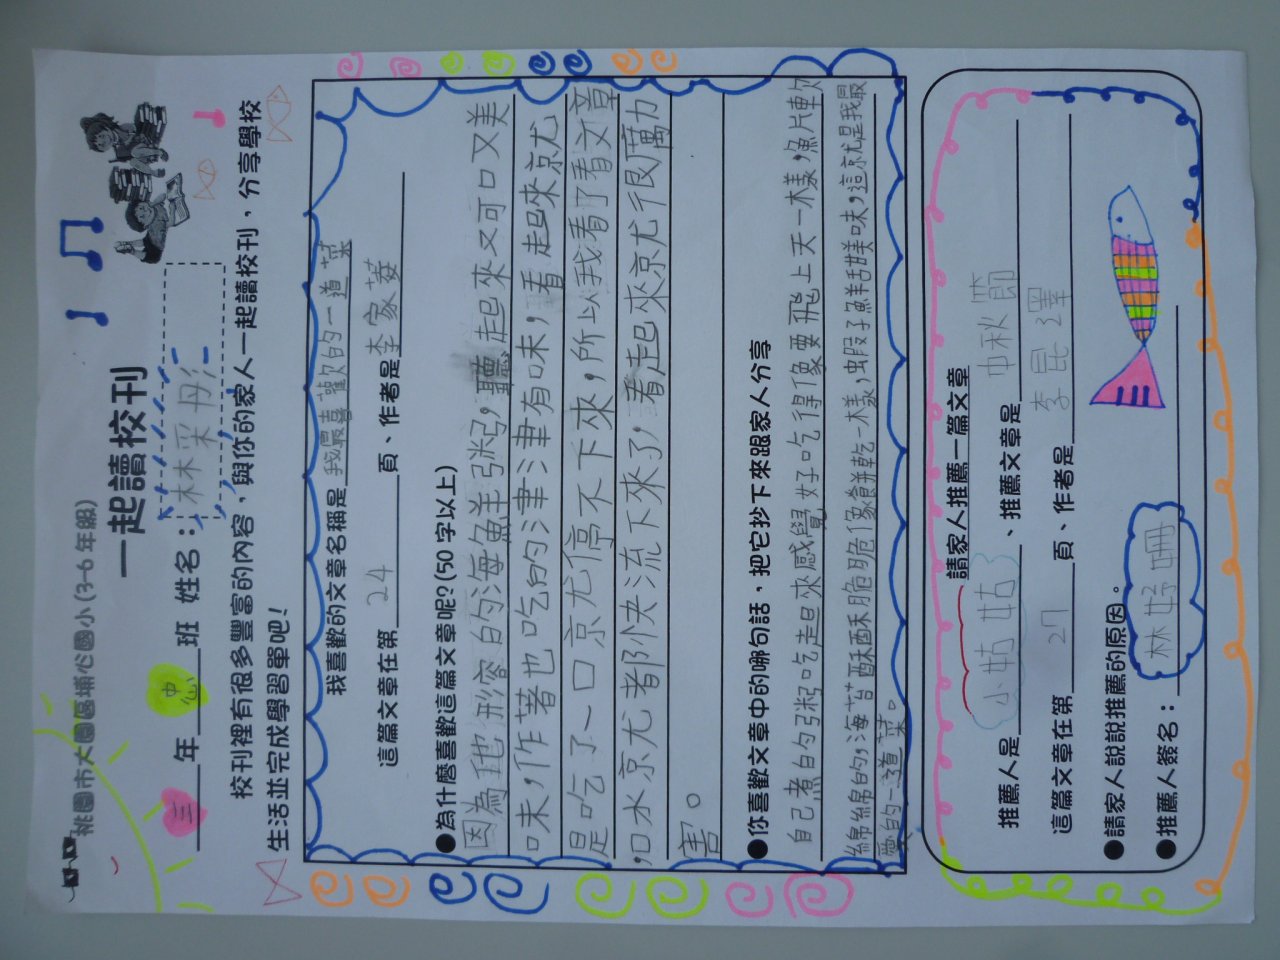 桃園市大園區埔心國小(3-6年級)
一起讀校刊
三年忠班 姓名：林采彤
校刊裡有很多豐富的內容，與你的家人一起讀校刊，分享學校
生活並完成學習單吧！
我喜歡的文章名稱是我最喜歡的一道菜
這篇文章在第24頁、作者是李家蓁
●為什麼喜歡這篇文章呢?(50字以上)
因為她形容的海鮮粥，聽起來又可口又美
味，作者也吃的津津有味，看起來就
是吃了一口就停不下來，所以我看了看文章
，口水就都快流下來了，看起來就很厲
害。
●你喜歡文章中的哪句話，把它抄下來跟家人分享
自己煮的粥吃起來感覺好吃得像要飛上天一樣，魚片軟
綿綿的，海苔酥酥脆脆像餅乾一樣，蝦子鮮活美味，這就是我最
愛的一道菜。
請家人推薦一篇文章
推薦人是小姑姑、推薦文章是中秋節
這篇文章在第27頁、作者是李昆澤
●請家人說說推薦的原因。
●推薦人簽名：林好珊